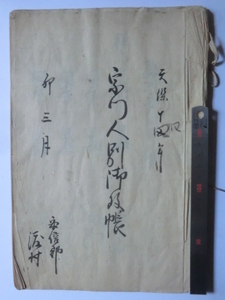 天保十四年
宗門人別御改帳
卯三月
郡
村